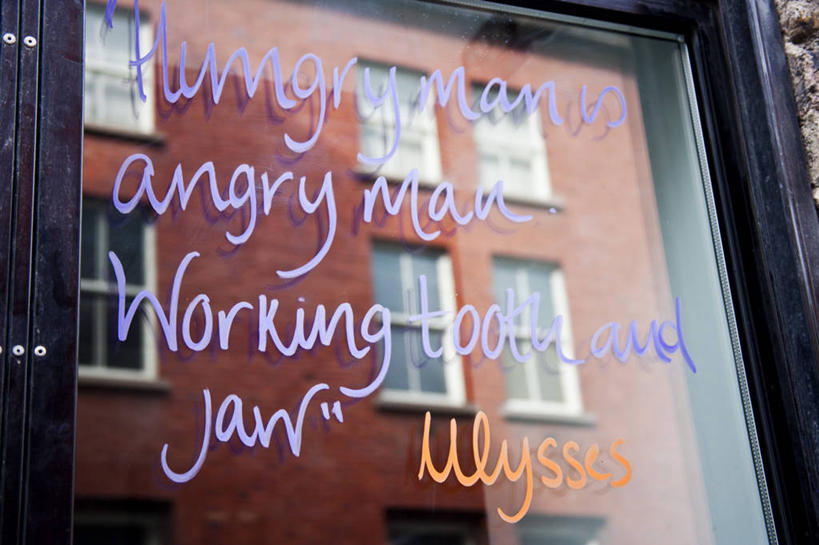 "Hungry man is
angry man.
Working tooth and
jaw"
Ulysses